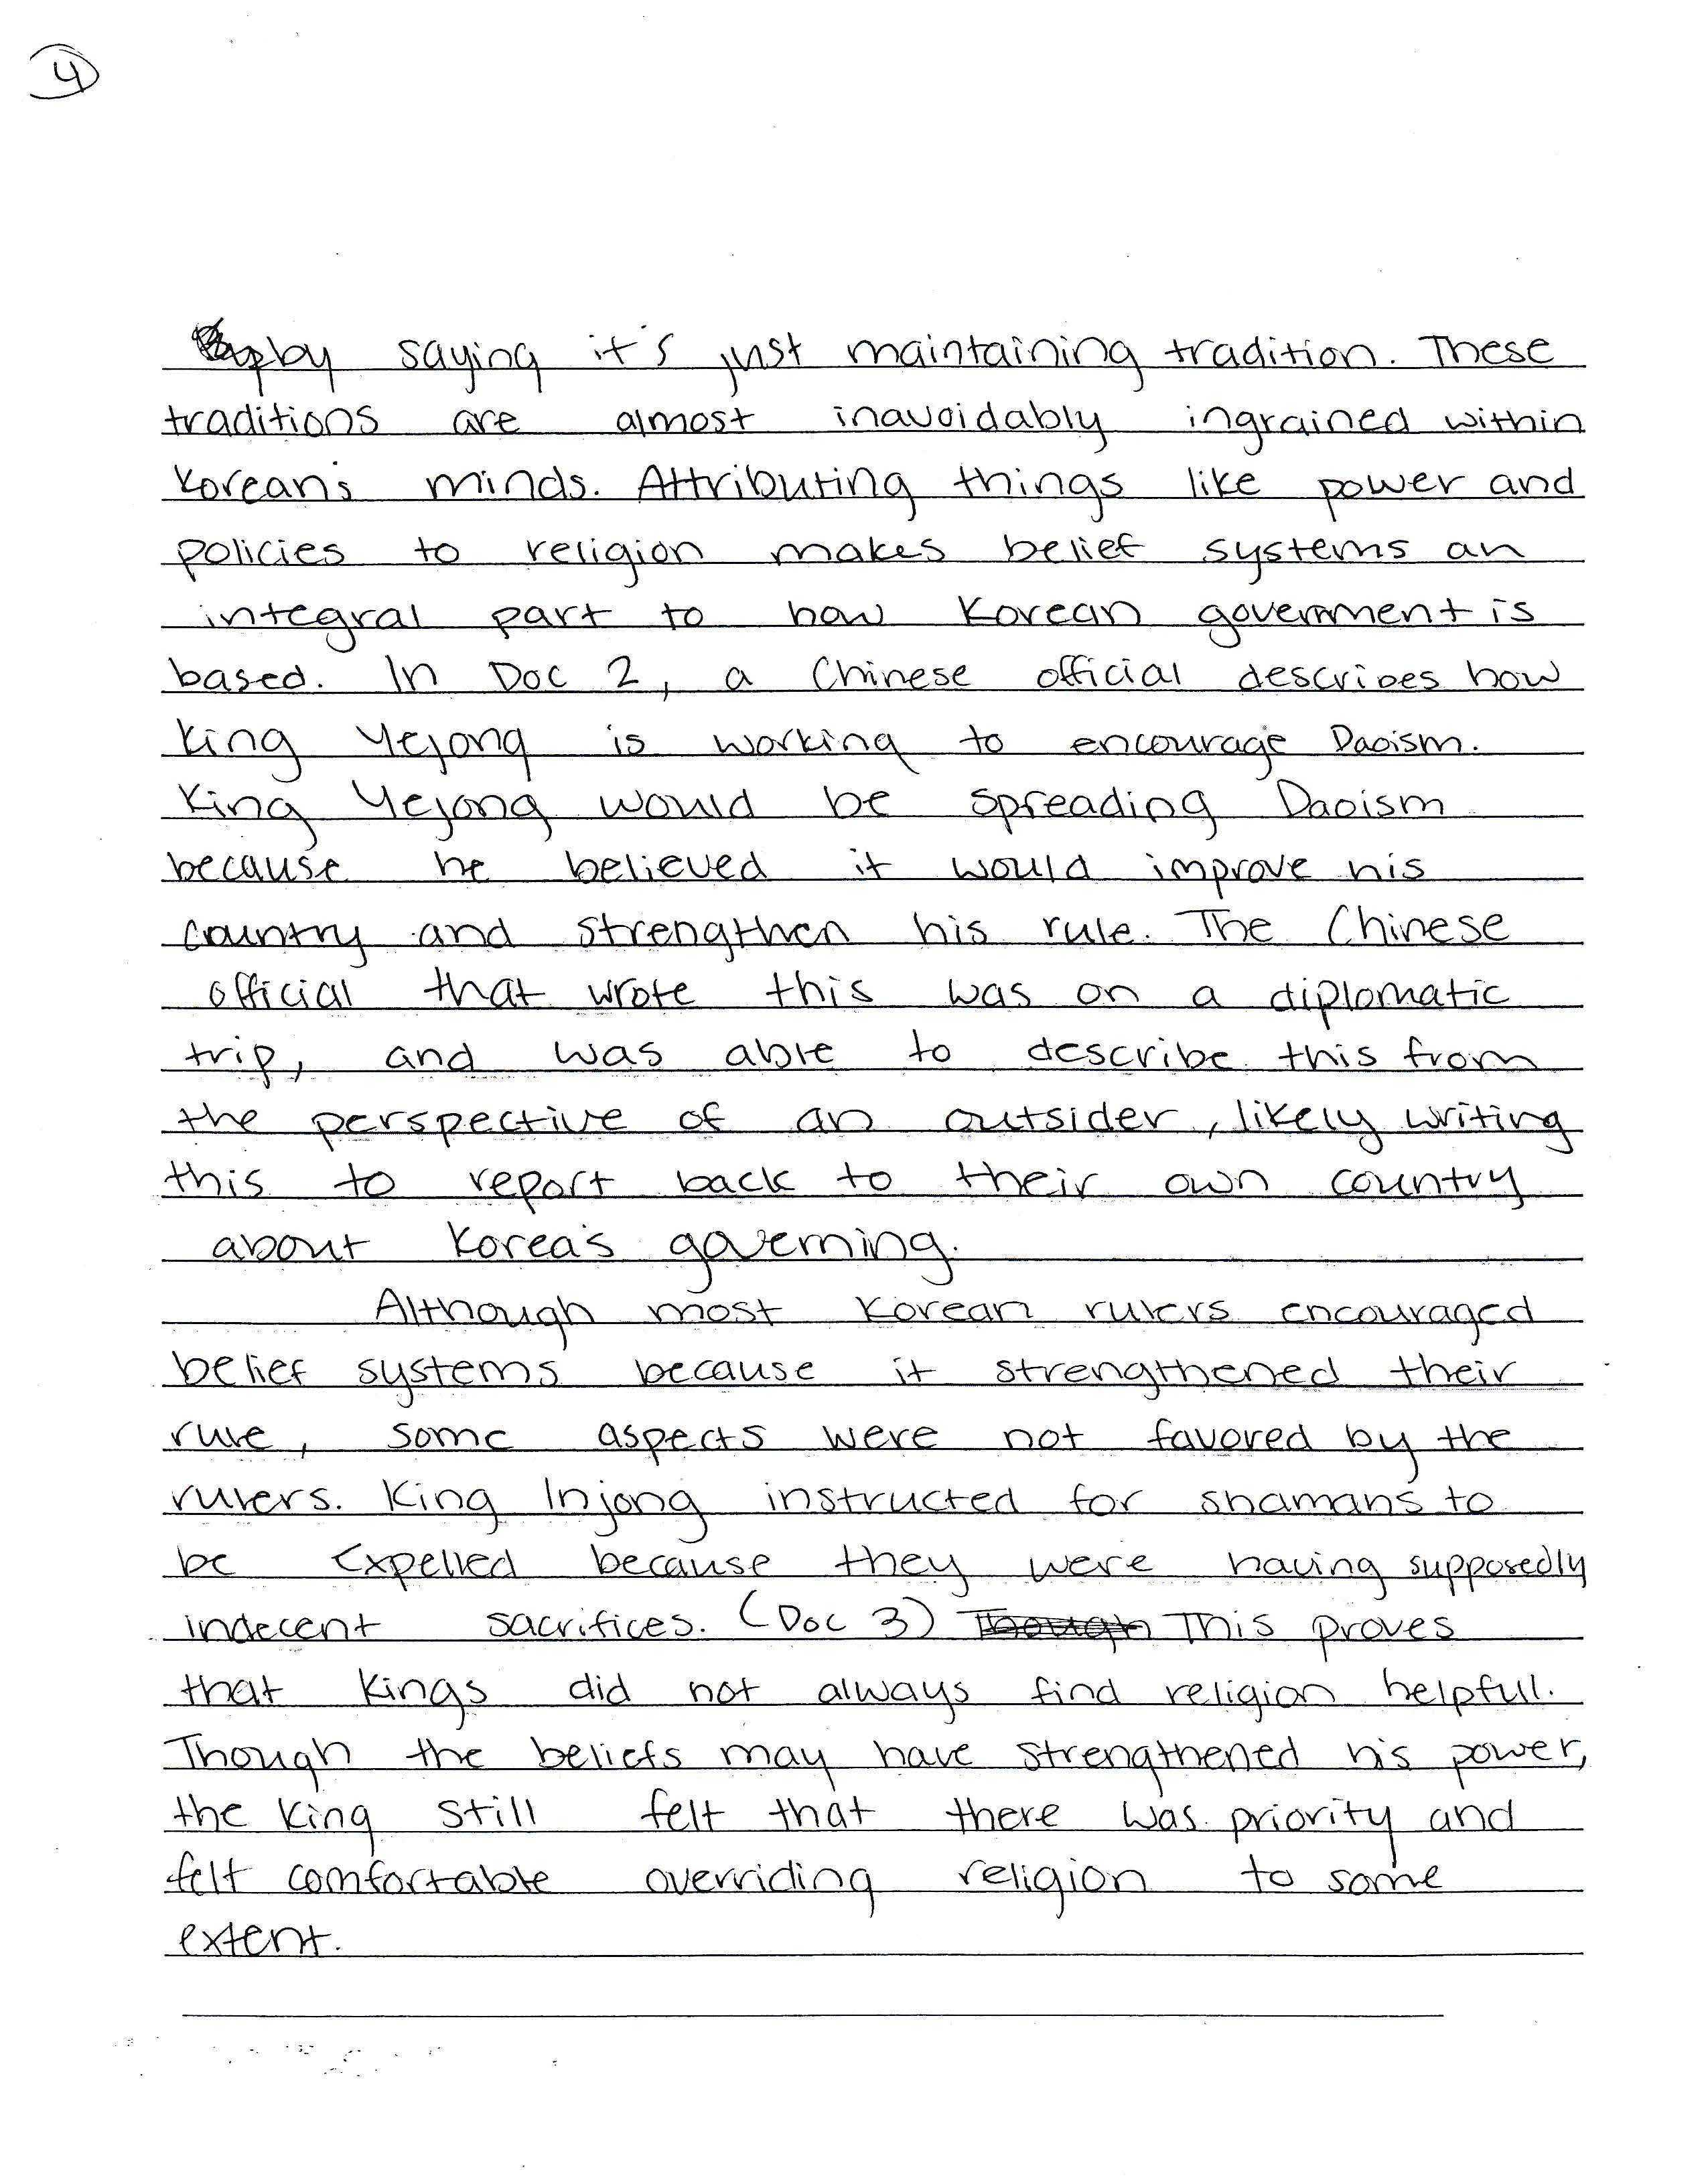 4
by saying it's just maintaining tradition. These
traditions are almost inavoidably ingrained within
Korean's minds. Attributing things like power and
policies to religion makes belief systems an
integral part to how Korean government is
based. In Doc 2, a Chinese official describes how
King Yejong is working to encourage Daoism.
King Yejong would be spreading Daoism
because he believed it would improve his
country and strengthen his rule. The Chinese
official that wrote this was on a diplomatic
trip, and was able to describe this from
the perspective of an outsider, likely writing
this to report back to their own country
about Korea's governing.
Although most Korean rulers encouraged
belief systems because it strengthened their
rule, some aspects were not favored by the
rulers. King Injong instructed for shamans to
be expelled because they were having supposedly
indecent sacrifices. (Doc 3) Though This proves
that kings did not always find religion helpfull.
Though the beliefs may have strengthened his power,
the king still felt that there was priority and
felt comfortable overriding religion to some
extent.